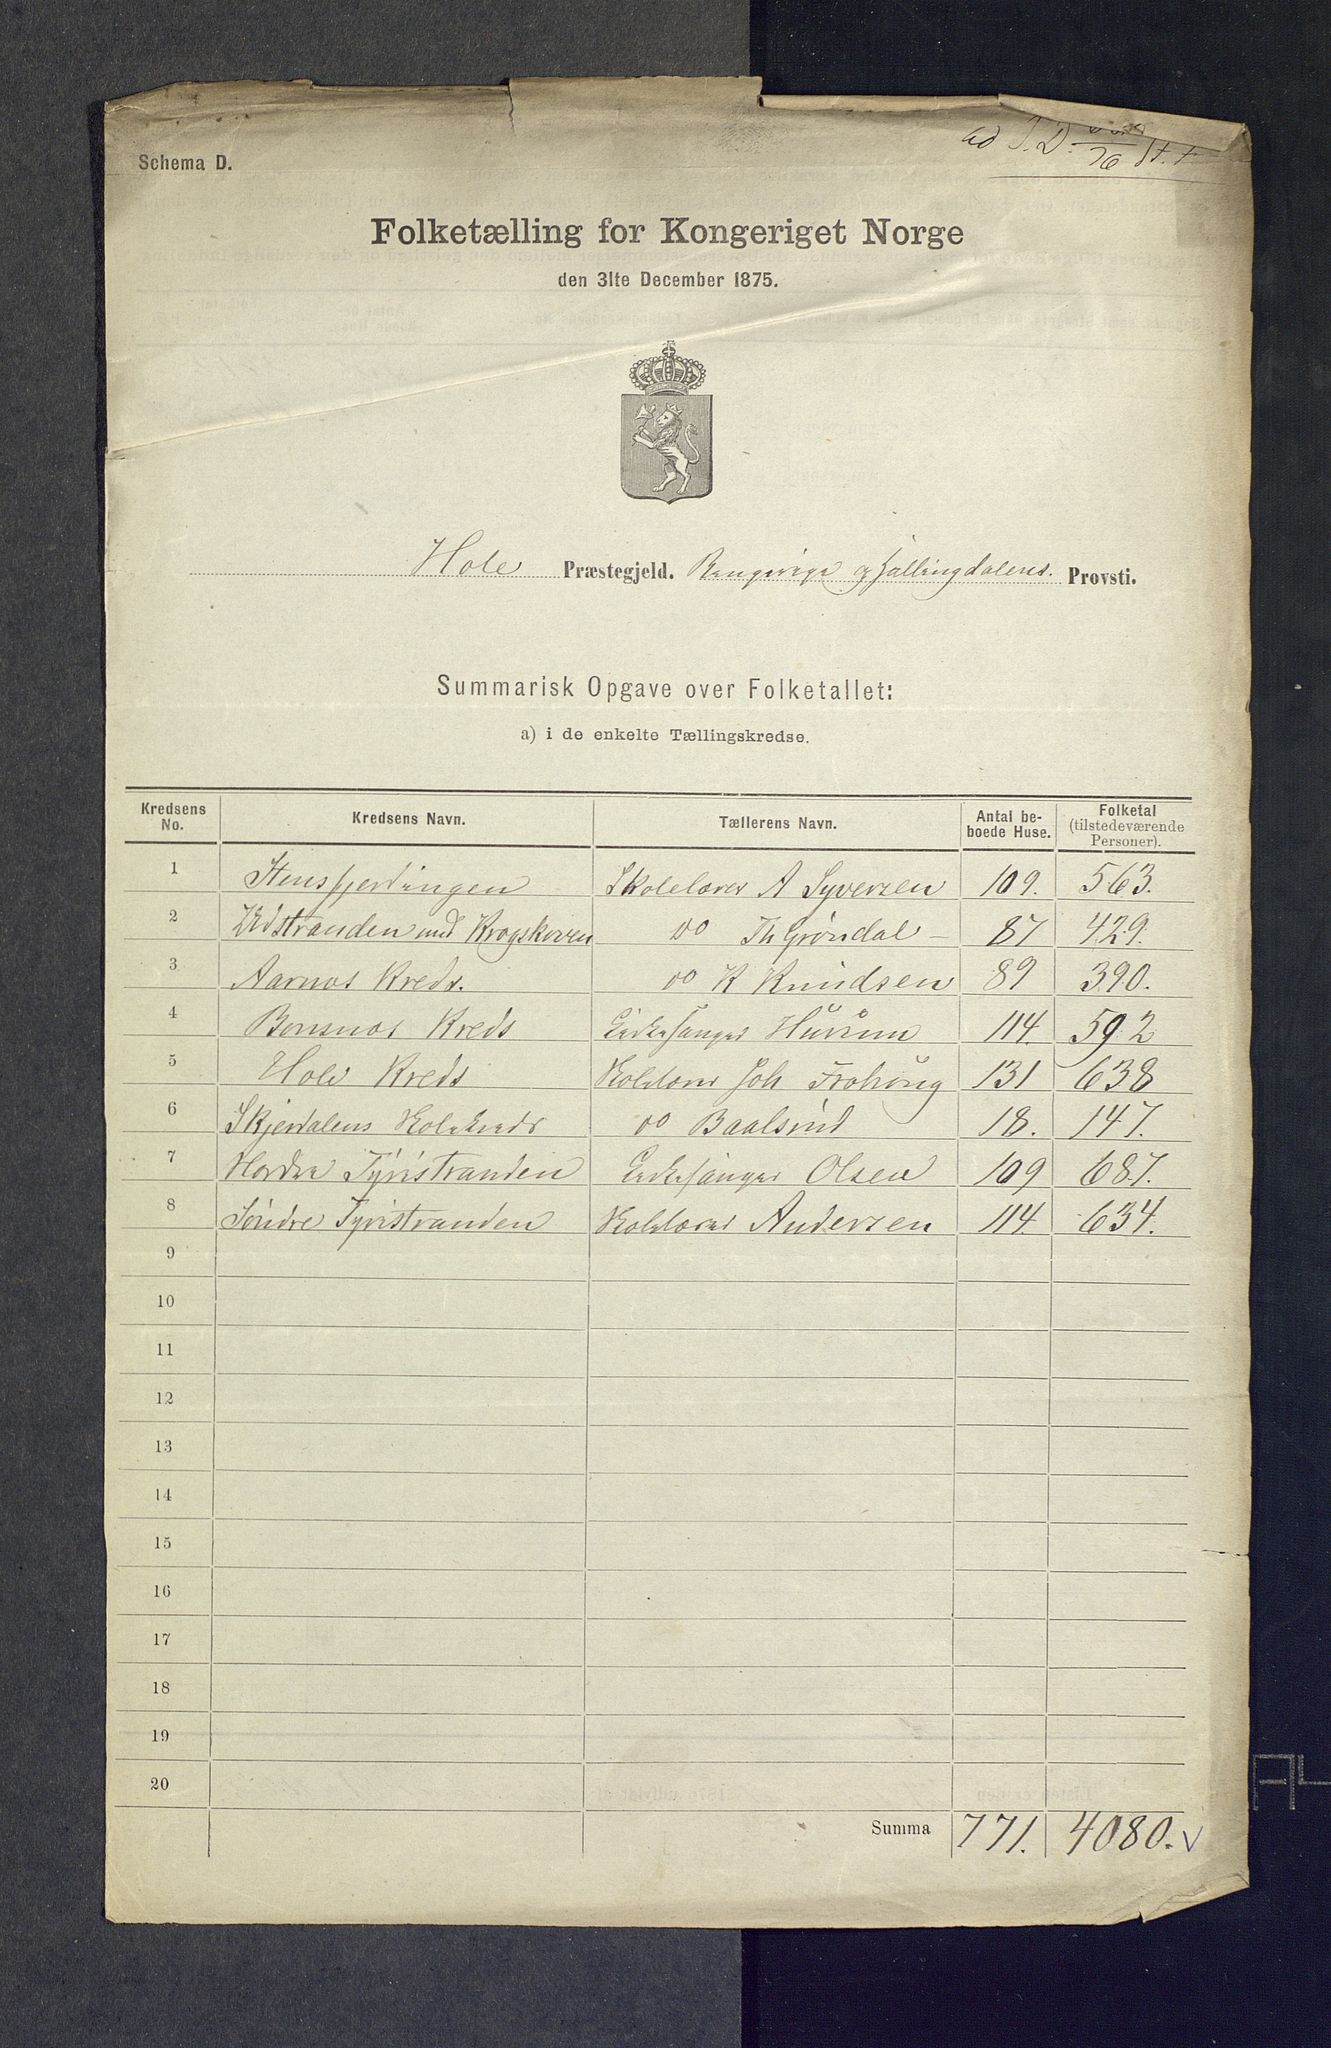 ad J. D. 76 St. t
Schema D.
Folketælling for Kongeriget Norge
den 31te December 1875.
Hole Præstegjeld. Ringerige og Hallingdalens. Provsti.
Summarisk Opgave over Folketallet:
a) i de enkelte Tællingskredse.
Kredsens No. Kredsens Navn. Tællerens Navn. Antal beboede Huse. Folketal (tilstedeværende Personer).
1 Stensfjerdingen Skolelærer A Syversen 109. 563.
2 Utstranden med Krogskoven do Th Grøndal 87 429.
3 Aarnæs Kreds. do K Knudsen 89 390.
4 Bønsnæs Kreds Kirkesanger Hurum 114. 592
5 Hole Kreds Skolelærer Joh Frohoug 131 638
6 Skjerdalens Skolekreds do Baalsrud 18. 147.
7 Nordre Tyristranden Kirkesanger Olsen 109 687.
8 Søndre Tyristranden Skolelærer Andersen 114. 634.
9
10
11
12
13
14
15
16
17
18
19
20
Summa 771. 4080. v